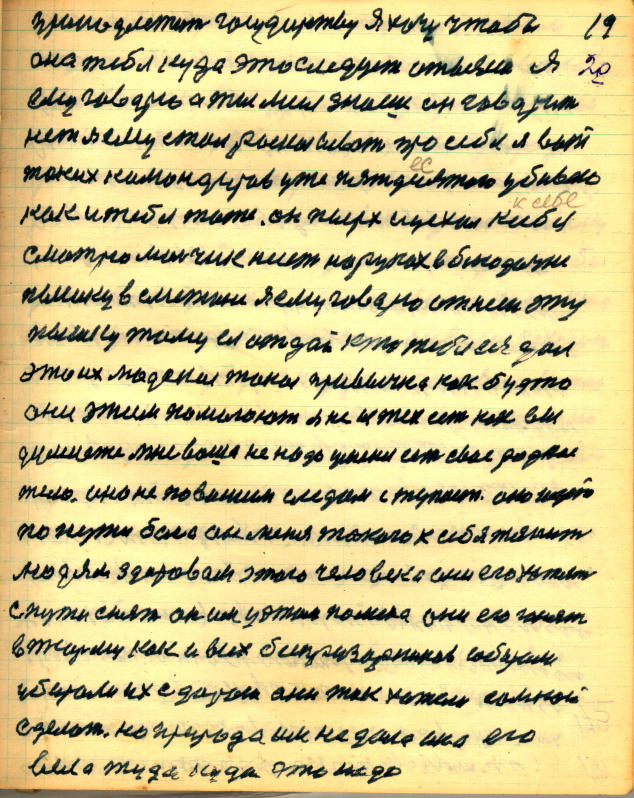 принодлежит государству Я хочу чтобы 19
она тебя куда это следует отвезла Я 20
ему говорю а ты меня знаеш он говорит
нет я ему стал росказывать про себя я вот
таких командиров уже пятдесятого убиваю
ес
к себе
как и тебя тоже. он и уехал к себя
смотрю малчик несет на руках в
пышку в сметане я ему говорю отнеси эту
пышку тому и отдай кто тебе ея дал
это их людская такая привычка как будто
они этим помогают я не из тех ест как вы
думаете мне ваша не надо у меня ест свое родное
тело. оно не по вашим следам ступает. оно
по пути бога он меня такого к себя тянит
людям здоровам этого человека они его хотят
с пути снят он им у этом помеха они его гонят
в тюрму как и всех безпризорников собирали
убирали их с дороги они так хотели сомной
сделат. но природа им не дала она его
вела туда куда это надо